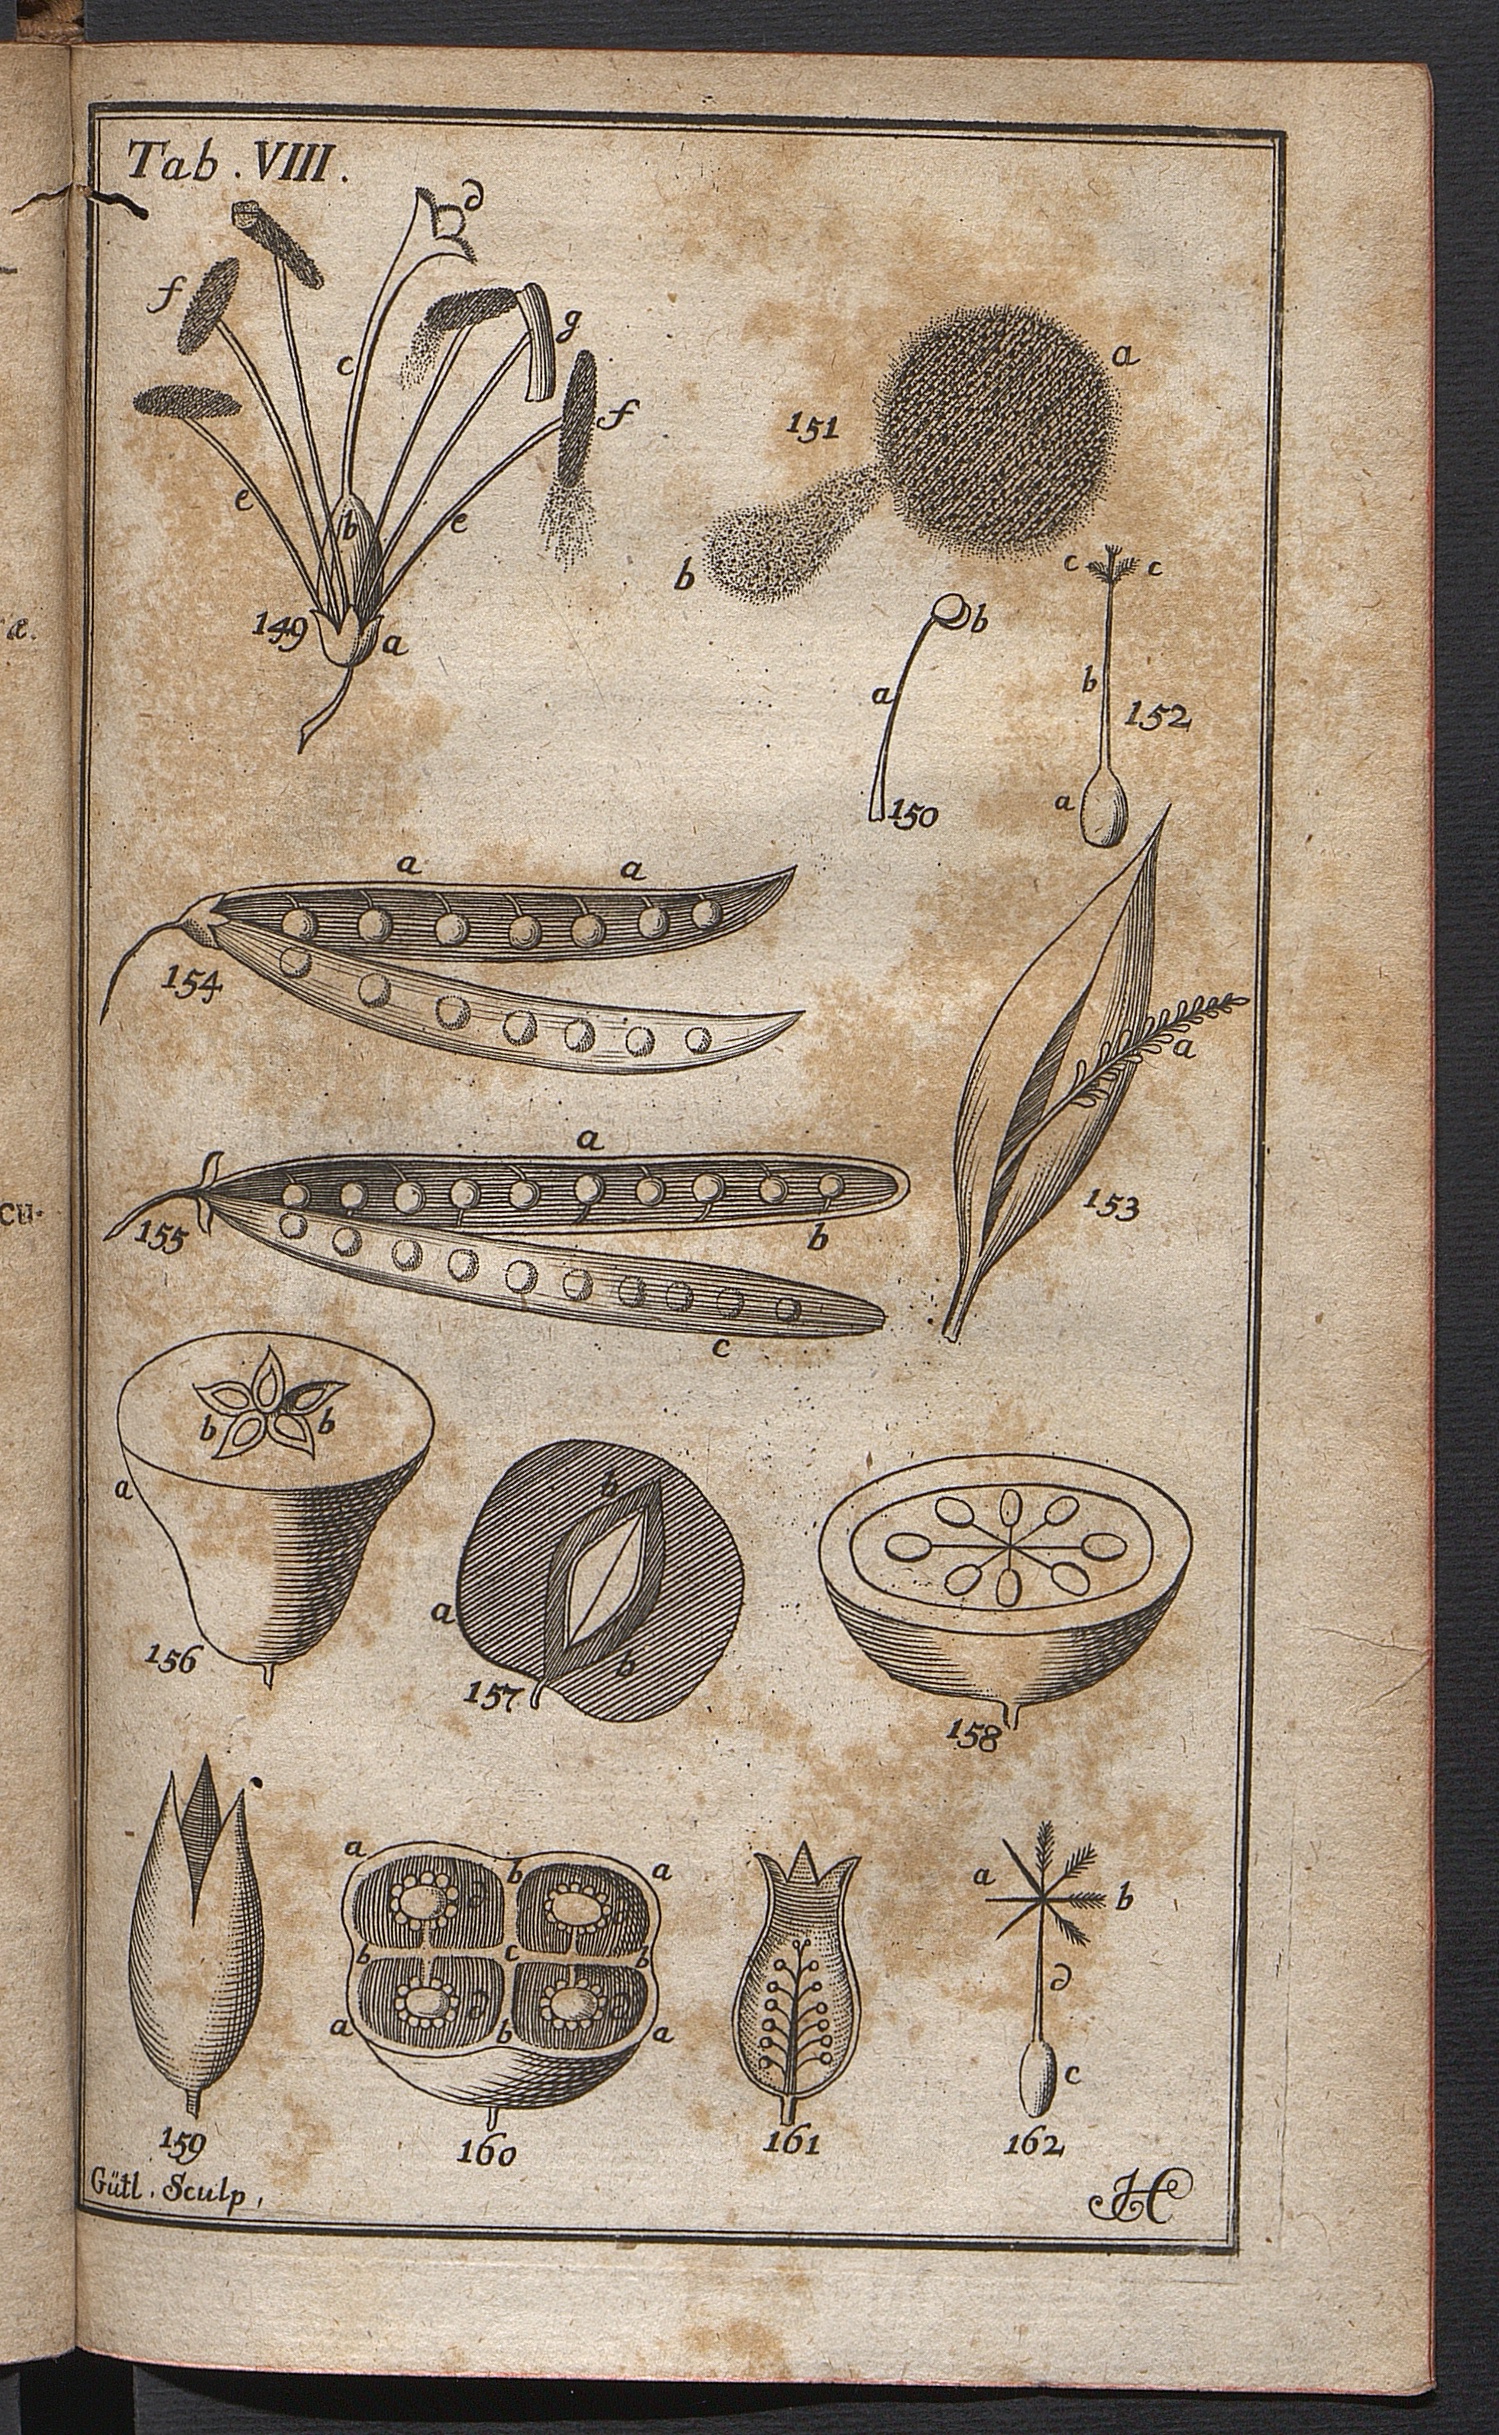 Tab. VIII.
d
f
g
c
a
f
151
e
b
e
b
c c
149 a
b
a
b
152
a
150
a a
154
a
a
153
155
b
c
b b
a
b
a
b
156
157
158
a b a
a b
b c b
d
a b a
c
159
160
161
162
Gütl. Sculp.
H
æ.
cu-